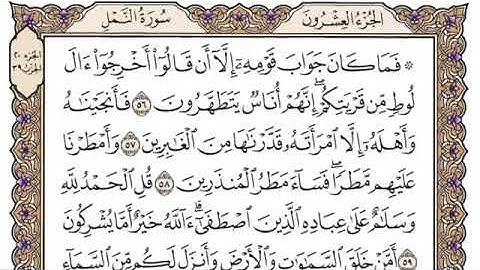 الجزء العشرون
سورة النمل
الجزء ٢٠
الحزب ٣٩
۞ فَمَا كَانَ جَوَابَ قَوْمِهِۦٓ إِلَّآ أَن قَالُوٓا۟ أَخْرِجُوٓا۟ ءَالَ
لُوطٍ مِّن قَرْيَتِكُمْ ۖ إِنَّهُمْ أُنَاسٌ يَتَطَهَّرُونَ ٥٦ فَأَنجَيْنَـٰهُ
وَأَهْلَهُۥٓ إِلَّا ٱمْرَأَتَهُۥ قَدَّرْنَـٰهَا مِنَ ٱلْغَـٰبِرِينَ ٥٧ وَأَمْطَرْنَا
عَلَيْهِم مَّطَرًا ۖ فَسَآءَ مَطَرُ ٱلْمُنذَرِينَ ٥٨ قُلِ ٱلْحَمْدُ لِلَّهِ
وَسَلَـٰمٌ عَلَىٰ عِبَادِهِ ٱلَّذِينَ ٱصْطَفَىٰٓ ۗ ءَآللَّهُ خَيْرٌ أَمَّا يُشْرِكُونَ
٥٩ أَمَّنْ خَلَقَ ٱلسَّمَـٰوَٰتِ وَٱلْأَرْضَ وَأَنزَلَ لَكُم مِّنَ ٱلسَّمَآءِ